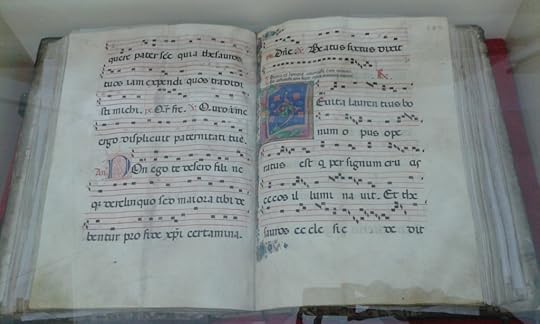 quere pater sce quia thesauros
tuos iam expendi quos tradidi
sti michi.
ergo displicuit paternitati tue.
Non ego te desero fili ne
q; derelinquo sed maiora tibi de
bentur pro fide xpi certamina.
Beatus sixtus dixit
Levita laurentius bo
num o pus ope
ratus est q per signum cru as
cecos il lumi na uit. Et the
sauros ec cle sie de dit